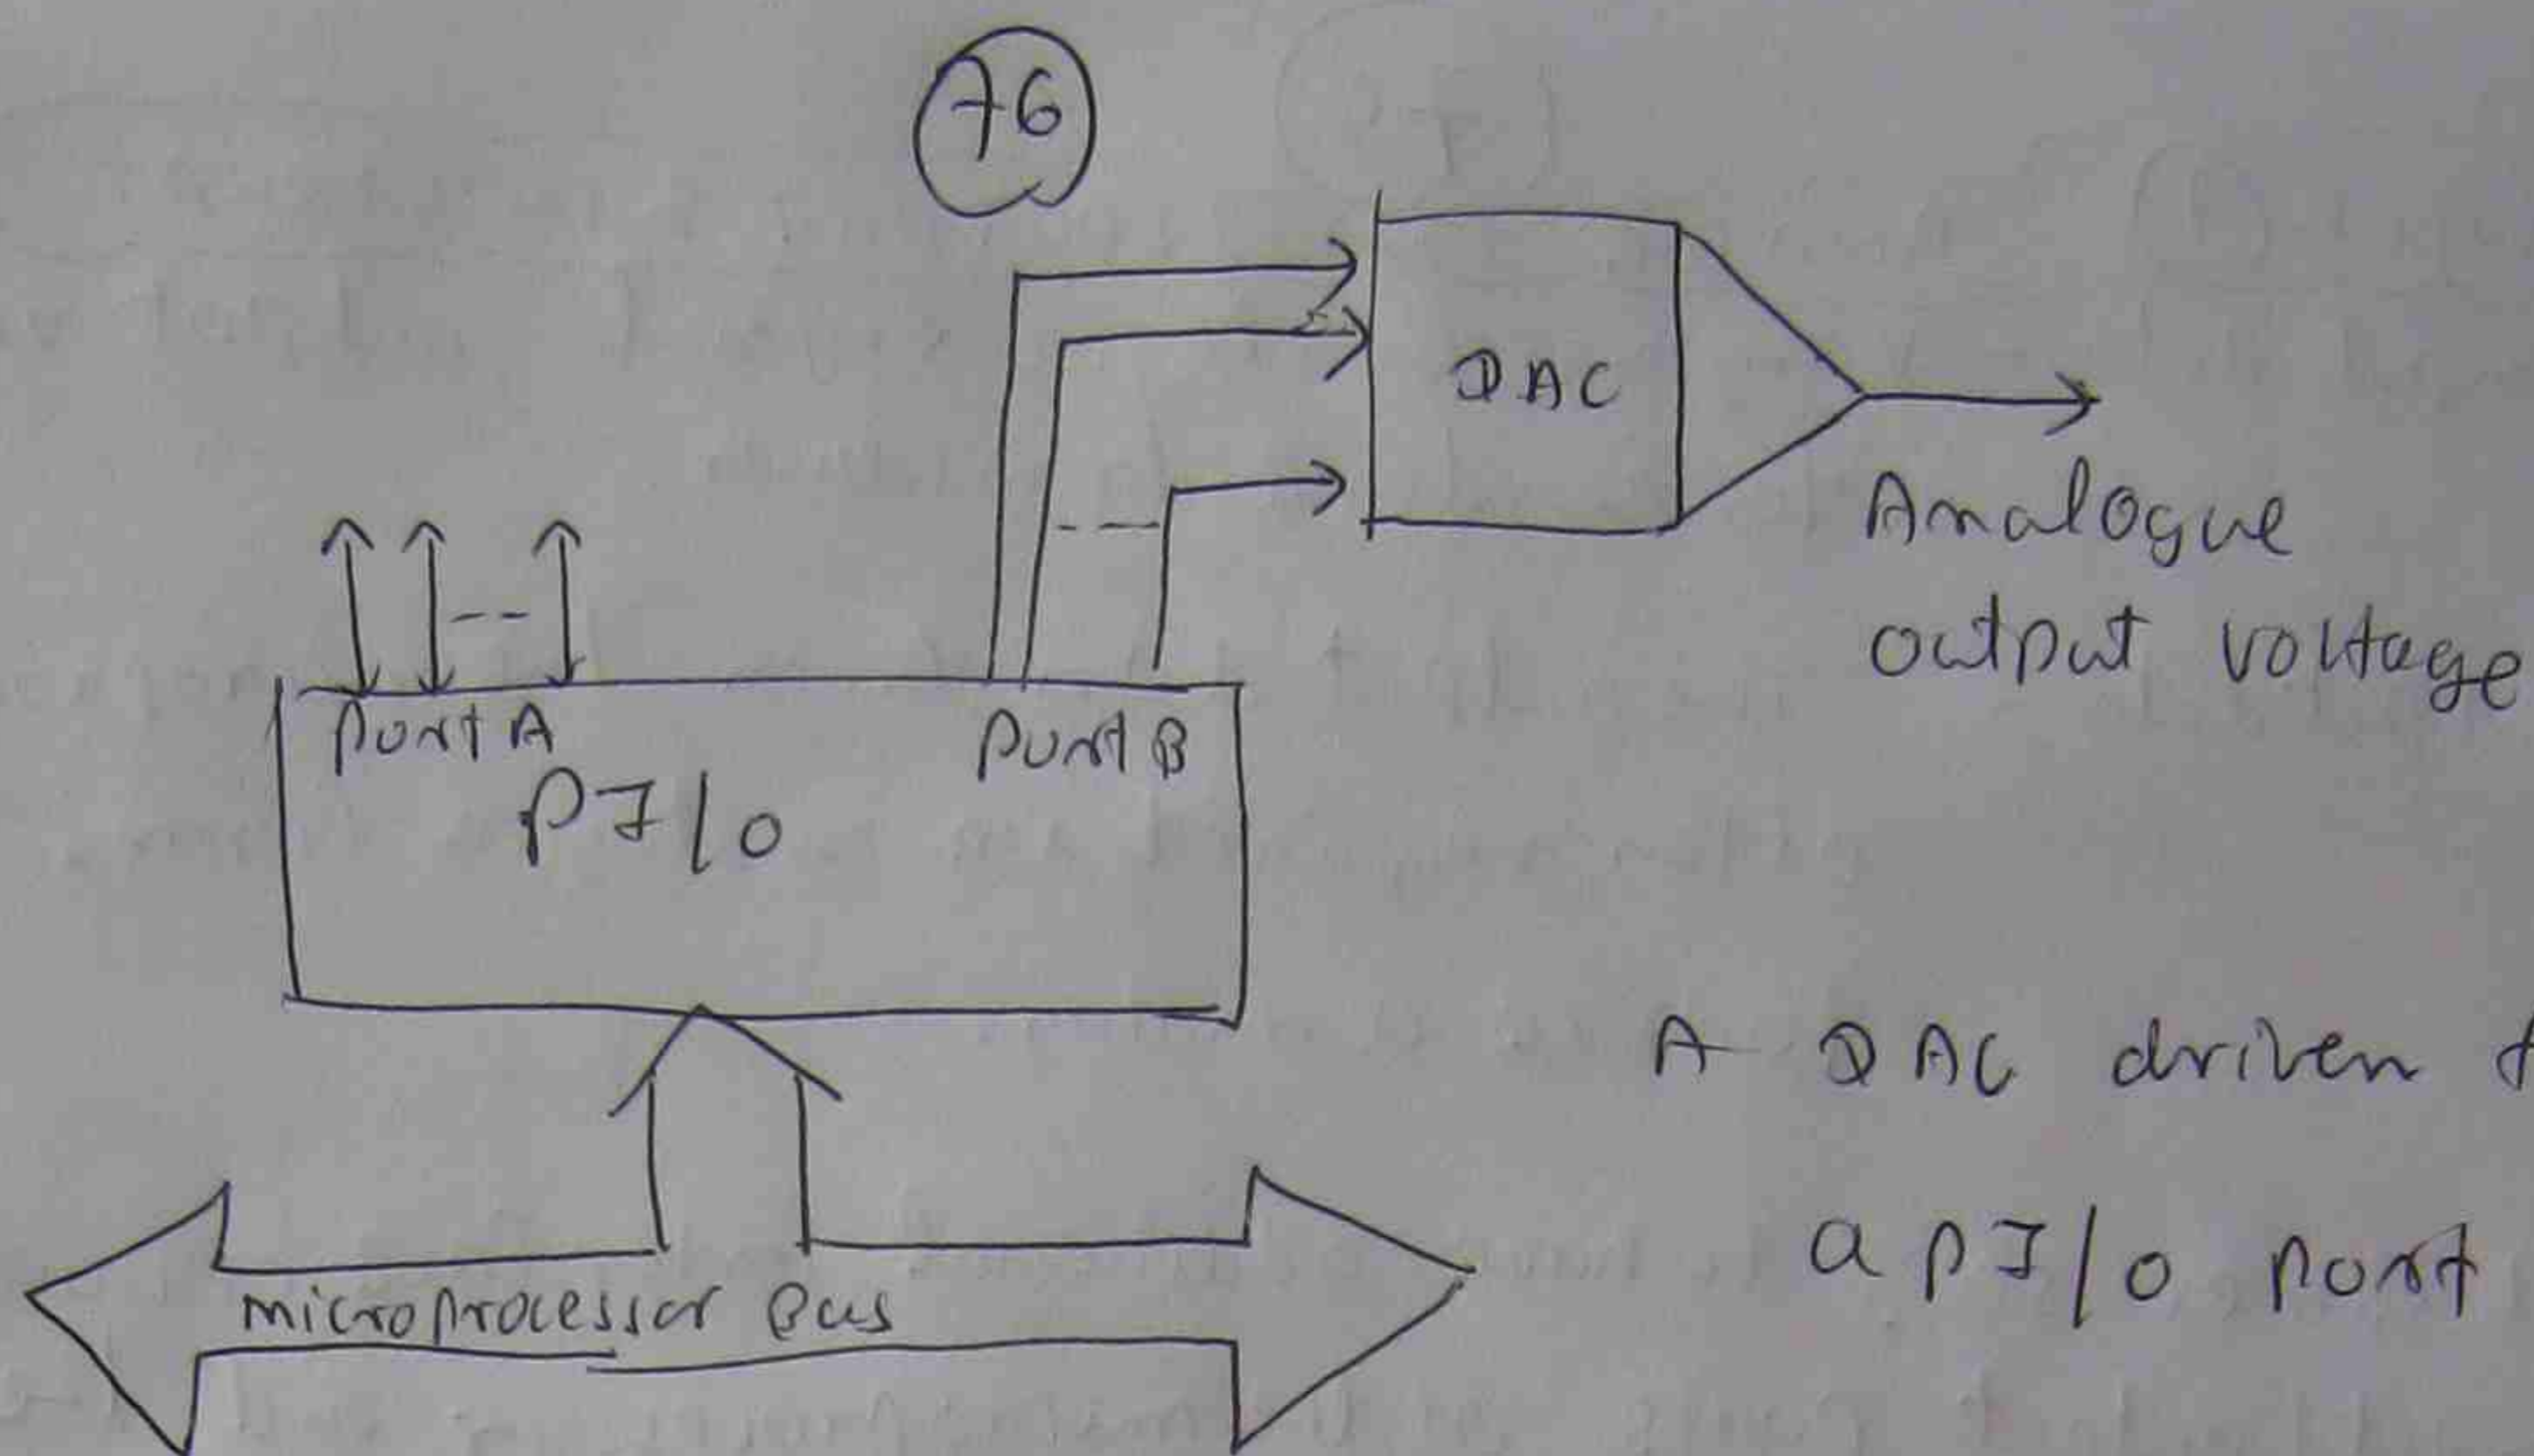 76
DAC
Analogue
output voltage
Port A
Port B
PI/O
A DAC driven
a PI/O port
microprocessor Bus